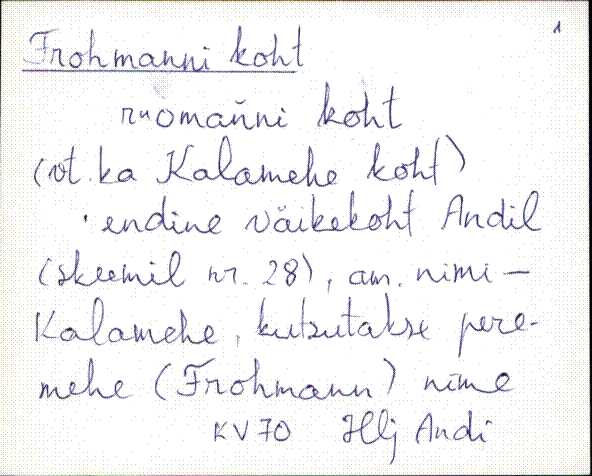 1
Frohmanni koht
ruomańni koht
(vt. ka Kalamehe koht)
endine väikekoht Andil
(skeemil nr. 28), am. nimi –
Kalamehe, kutsutakse pere-
mehe (Frohmann) nime
KV70 Hlj Andi